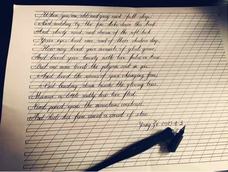 When you are old and grey and full of sleep,
And nodding by the fire, take down this book,
And slowly read, and dream of the soft look
Your eyes had once, and of their shadows deep,
How many loved your moments of glad grace,
And loved your beauty with love false or true
But one man loved the pilgrim soul in you
And loved the sorrows of your changing face,
And bending down beside the glowing bars
Murmur, a little sadly, how love fled
And paced upon the mountains overhead
And hid his face amid a crowd of stars